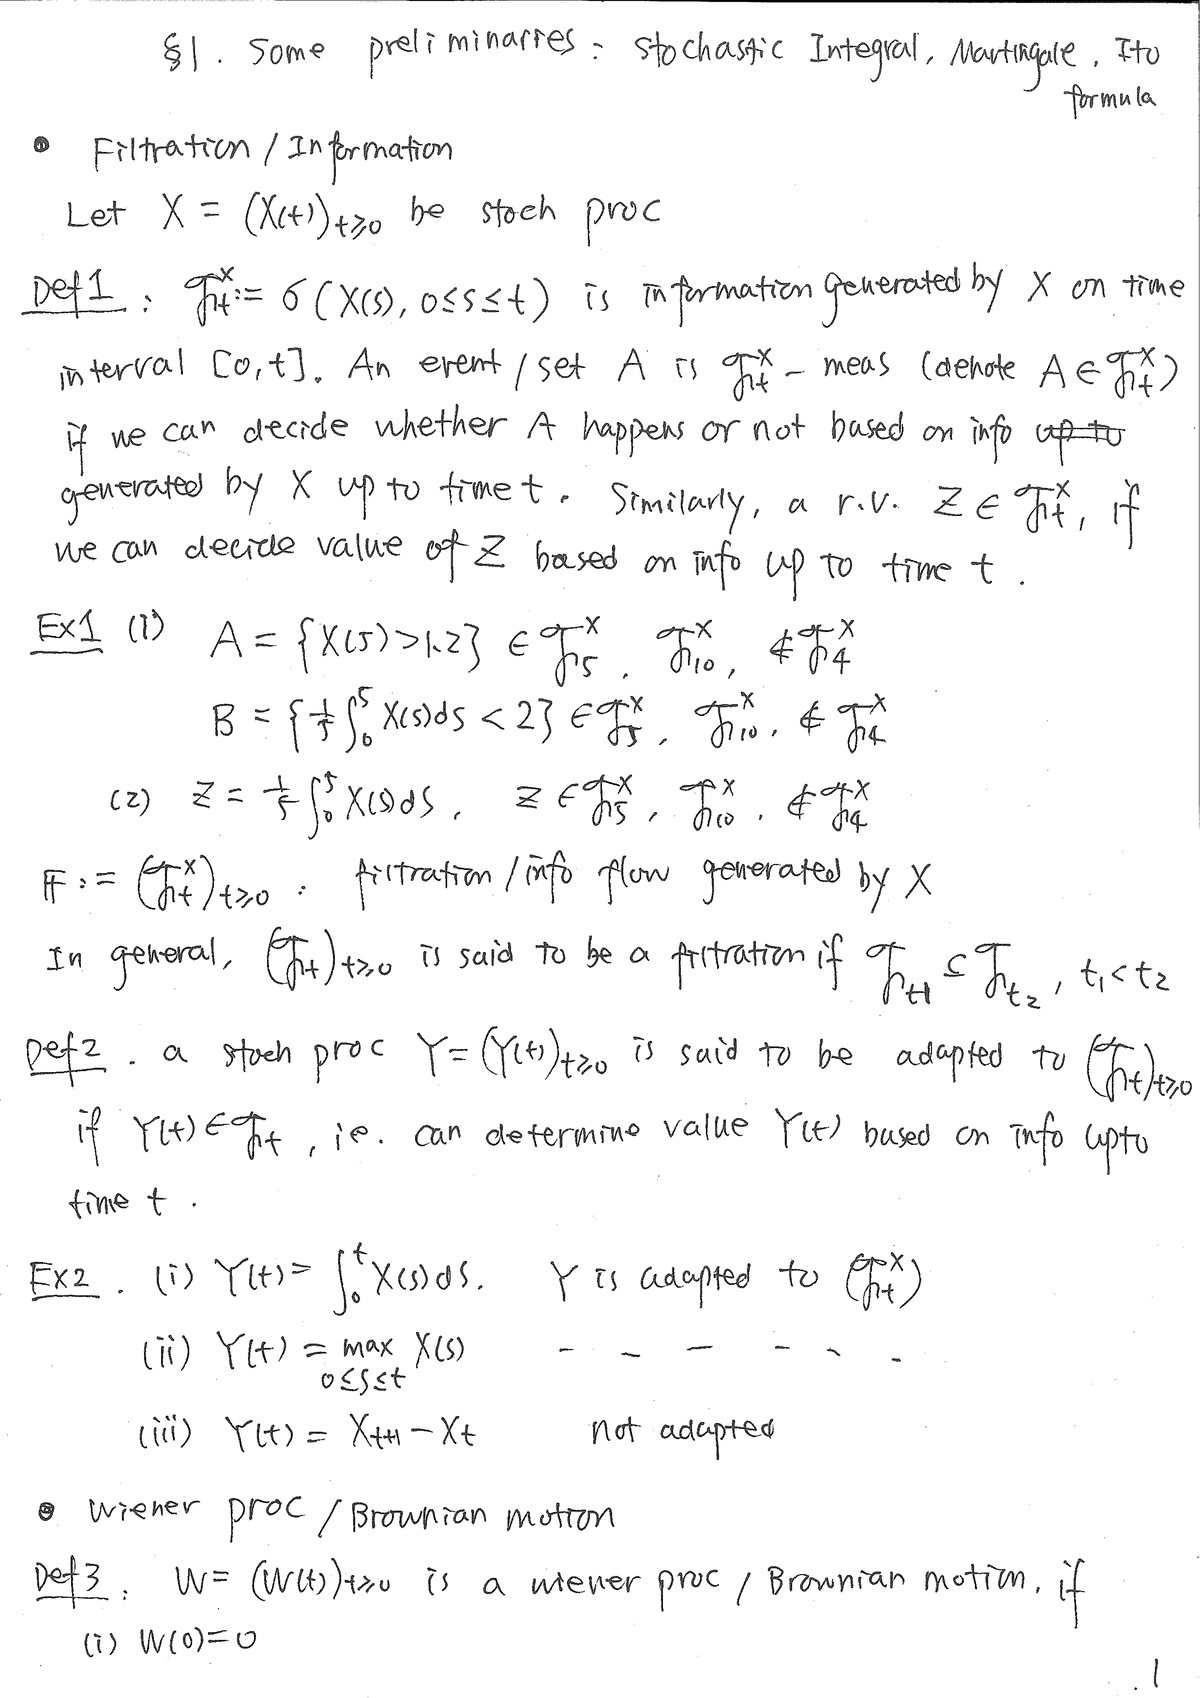 §1. Some preliminaries: Stochastic Integral, Martingale, Ito
formula
• Filtration / Information
Let X = (X(t))_{t≥0} be stoch proc
Def 1: 𝓕_t^X := σ(X(s), 0≤s≤t) is information generated by X on time
interval [0,t]. An event / set A is 𝓕_t^X – meas (denote A ∈ 𝓕_t^X)
if we can decide whether A happens or not based on info ~~up to~~
generated by X up to time t. Similarly, a r.v. Z ∈ 𝓕_t^X, if
we can decide value of Z based on info up to time t.
Ex1 (i) A = {X(5) > 1.2} ∈ 𝓕_5^X, 𝓕_10^X, ∉ 𝓕_4^X
B = {1/5 ∫_0^5 X(s)ds < 2} ∈ 𝓕_5^X, 𝓕_10^X, ∉ 𝓕_4^X
(2) Z = 1/5 ∫_0^5 X(s)ds, Z ∈ 𝓕_5^X, 𝓕_10^X, ∉ 𝓕_4^X
𝔽 := (𝓕_t^X)_{t≥0} : filtration / info flow generated by X
In general, (𝓕_t)_{t≥0} is said to be a filtration if 𝓕_{t1} ⊆ 𝓕_{t2}, t1 < t2
Def 2. a stoch proc Y = (Y(t))_{t≥0} is said to be adapted to (𝓕_t)_{t≥0}
if Y(t) ∈ 𝓕_t, ie. can determine value Y(t) based on info up to
time t.
Ex2. (i) Y(t) = ∫_0^t X(s)ds. Y is adapted to (𝓕_t^X)
(ii) Y(t) = max X(s) - - - - - -
0≤s≤t
(iii) Y(t) = X_{t+1} – X_t not adapted
• Wiener proc / Brownian motion
Def 3. W = (W(t))_{t≥0} is a wiener proc / Brownian motion, if
(i) W(0)=0
1